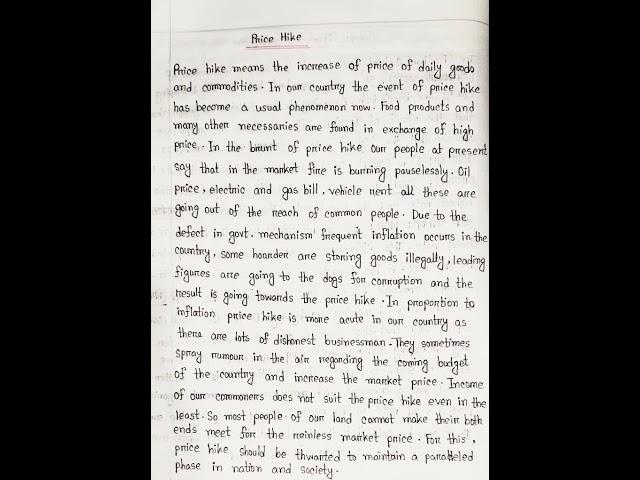 Price Hike
Price hike means the increase of price of daily goods
and commodities. In our country the event of price hike
has become a usual phenomenon now. Food products and
many other necessaries are found in exchange of high
price. In the brunt of price hike our people at present
say that in the market fire is burning pauselessly. Oil
price, electric and gas bill, vehicle rent all these are
going out of the reach of common people. Due to the
defect in govt. mechanism frequent inflation occurs in the
country, some hoarder are storing goods illegally, leading
figures are going to the dogs for corruption and the
result is going towards the price hike. In proportion to
inflation price hike is more acute in our country as
there are lots of dishonest businessman. They sometimes
spray rumour in the air regarding the coming budget
of the country and increase the market price. Income
of our commoners does not suit the price hike even in the
least. So most people of our land cannot make their both
ends meet for the reinless market price. For this,
price hike should be thwarted to maintain a paralleled
phase in nation and society.